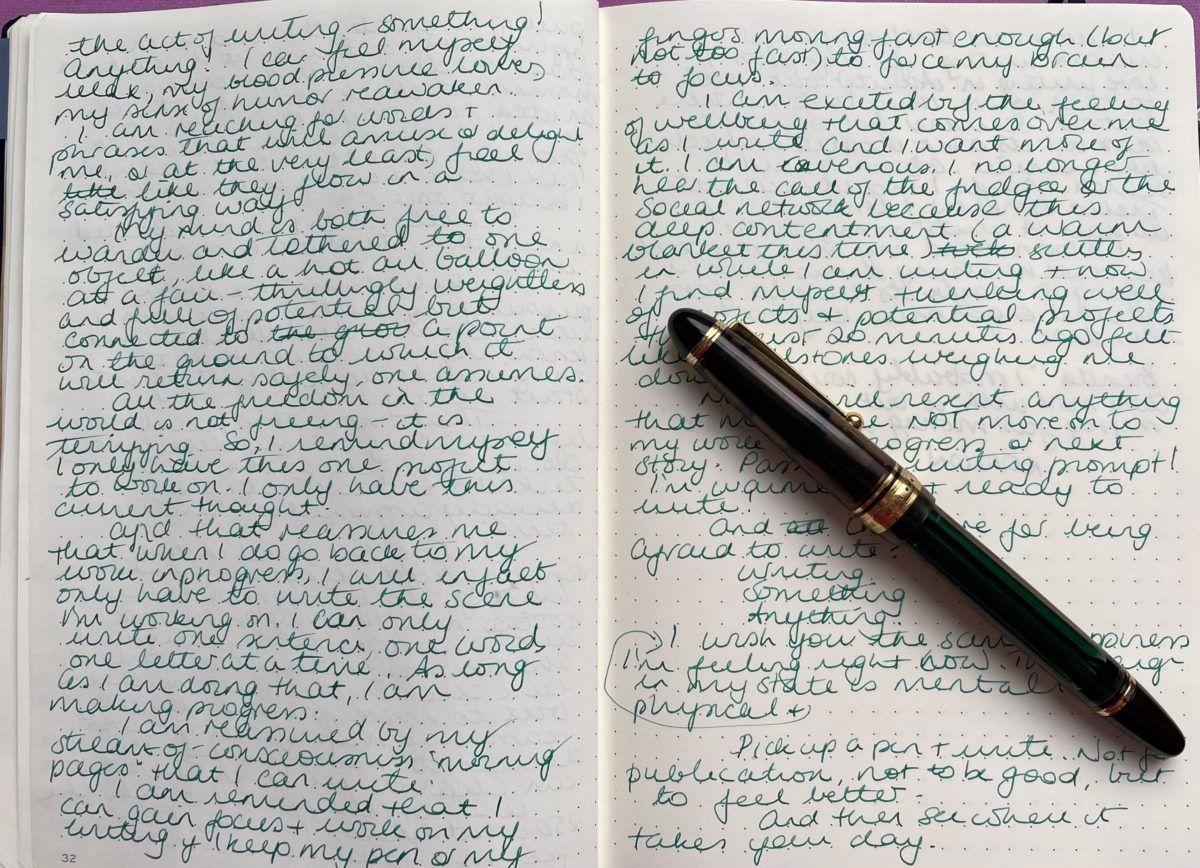 the act of writing - something!
Anything! I can feel myself
relax, my blood pressure lowers,
my sense of humor reawaken
I am reaching for words +
phrases that will amuse & delight
me, or at the very least, feel
like like they flow in a
satisfying way
My mind is both free to
wander and tethered to one
object, like a hot air balloon
at a fair - thrillingly weightless
and full of potential, but
connected to the a point
on the ground to which it
will return safely, one assumes.
All the freedom in the
world is not freeing - it is
terrifying. So, I remind myself
I only have this one project
to work on. I only have this
current thought.
And that reassures me
that when I do go back to my
work in progress, I will in fact
only have to write the scene
I'm working on. I can only
write one sentence, one word,
one letter at a time. As long
as I am doing that, I am
making progress.
I am reassured by my
stream-of-consciousness "morning
pages" that I can write.
I am reminded that I
can gain focus + work on my
writing if I keep my pen or my
32
fingers moving fast enough (but
not too fast) to force my brain
to focus.
I am excited by the feeling
of wellbeing that comes over me
as I write and I want more of
it. I am ravenous. I no longer
hear the call of the fridge or the
social network because this
deep contentment (a warm
blanket this time) settles
in while I am writing + now
I find myself thinking well
of projects + potential projects
that just 20 minutes ago felt
like stones weighing me
down
resent anything
that me NOT more on to
my work progress or next
story. writing prompt!
I'm warmed ready to
write.
And for being
afraid to write:
Writing.
Something
Anything.
I wish you the same happiness
I'm feeling right now. The
in my state is mental
physical +
Pick up a pen + write. Not for
publication, not to be good, but
to feel better.
And then see where it
takes your day.